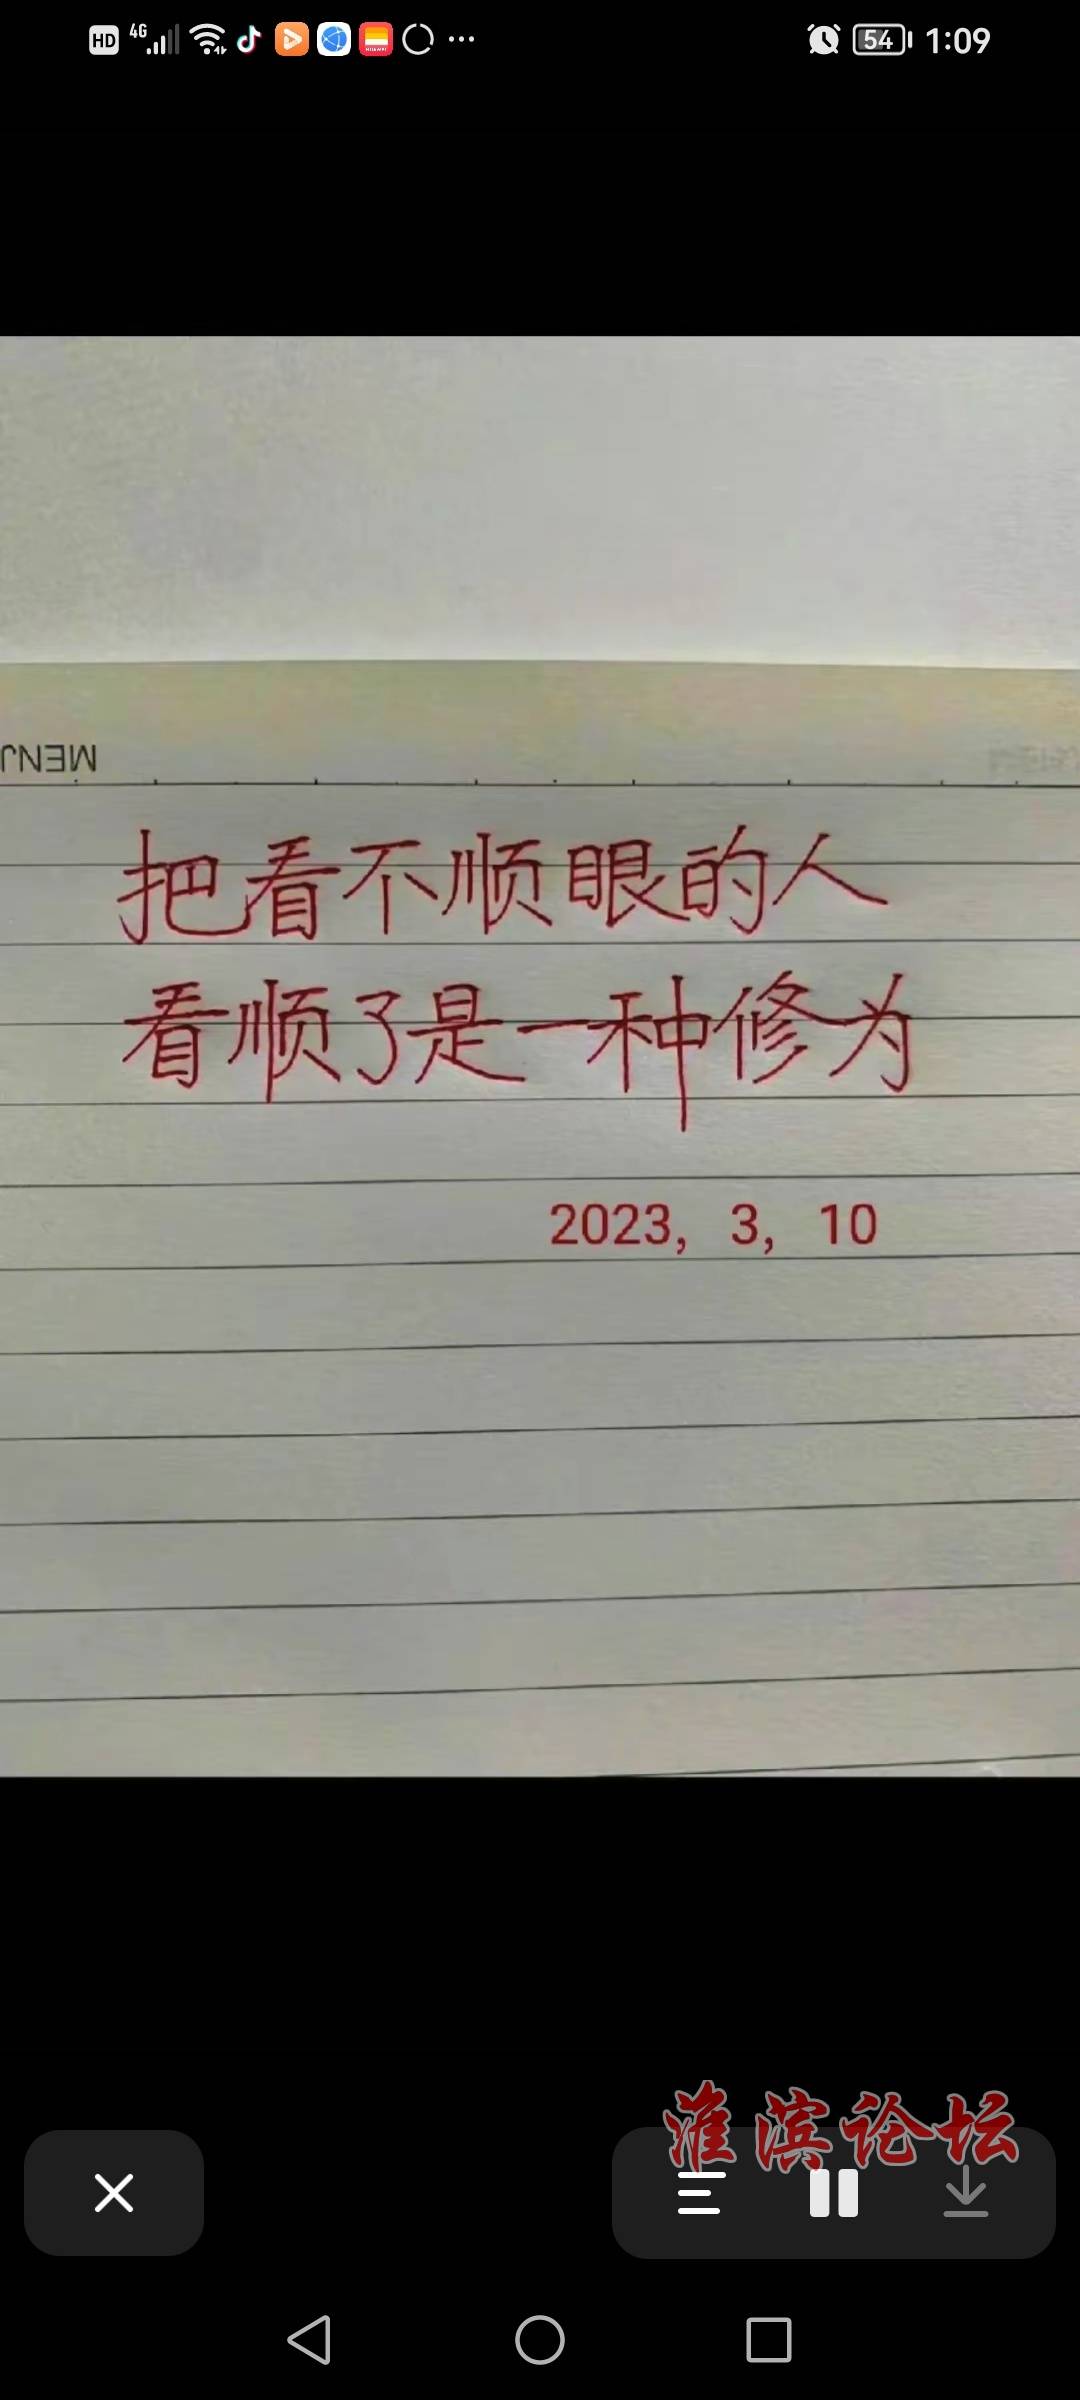 HD 4G 54 1:09
MENJ
把看不顺眼的人
看顺了是一种修为
2023, 3, 10
淮滨论坛